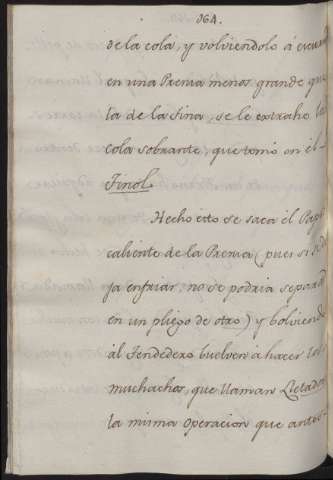 364.
de la cola, y volviendolo á
en una Prensa menos grande que
la de la tina, se le extrahe la
cola sobrante, que tomó en él
Tinol.
Hecho esto se saca él
caliente de la Prensa (pues si se
ja enfriar, no se podria
en un pliego de otro) y bolviendo
ál Tendedero buelven á hacer los
muchachos, que llaman
la misma operacion que antes